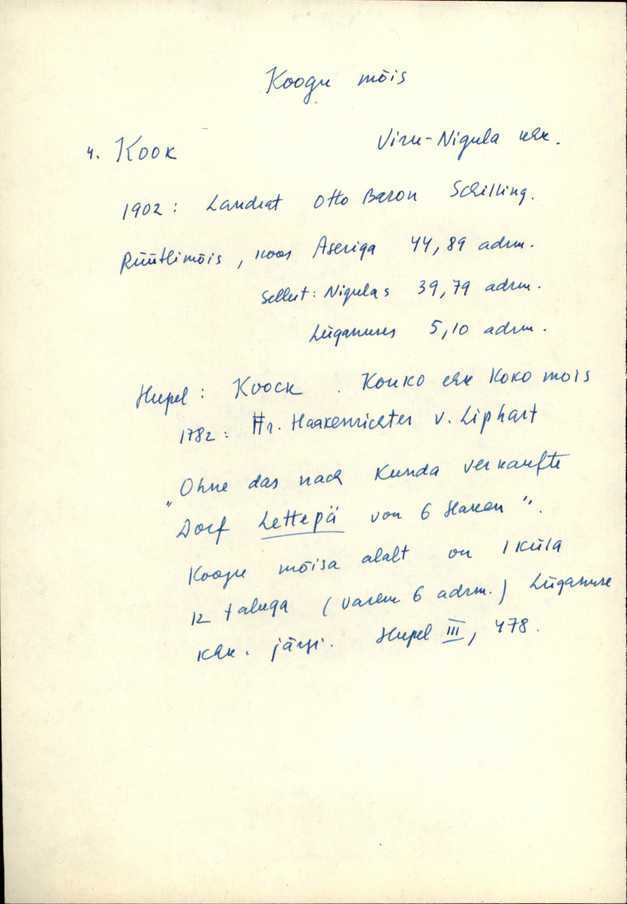 Koogu mõis
4. Kook Viru-Nigula khk.
1902: Landrat Otto Baron Schilling.
Rüütlimõis, koos Aseriga 44,89 adrm.
Sellest: Nigulas 39,79 adrm.
Lüganuses 5,10 adrm.
Hupel: Koock. Kouko ehk Koko mois
1782: Hr. Haakenrichter v. Liphart
"Ohne das nach Kunda verkaufte
Dorf Lettepä von 6 Haken".
Koogu mõisa alalt on 1 küla
12 taluga (varem 6 adrm.) Lüganuse
khk. järgi. Hupel III, 478.